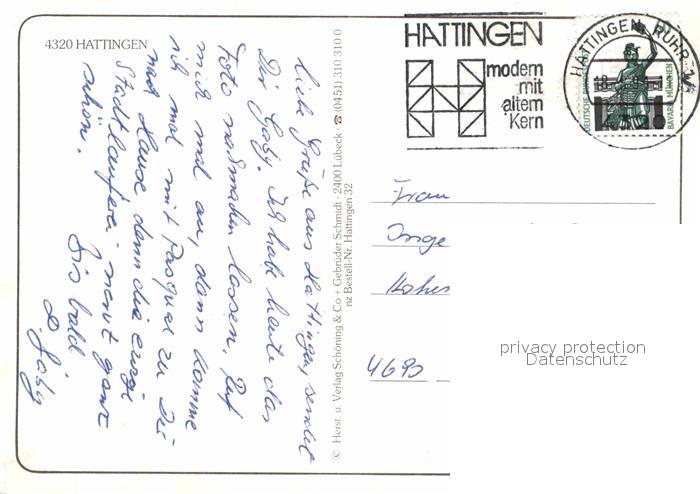 4320 HATTINGEN
Liebe Grüße aus Hattingen, sendet
Dir Gaby. Ich habe heute das
Foto nachmachen lassen. Ruf
mich mal an, dann komme
ich mal mit Pasqual zu Dir
nach Hause denn die ewige
Stadtlauferei nervt ganz
schön.
Bis bald
D. Gaby
© Herst. u. Verlag Schöning & Co + Gebrüder Schmidt · 2400 Lübeck · ☎ (0451) 310 310 0
nz Bestell-Nr. Hattingen 32
HATTINGEN
modern
mit
altem
Kern
HATTINGEN, RUHR
BAVARIA MÜNCHEN
Frau
Inge
4690
privacy protection
Datenschutz